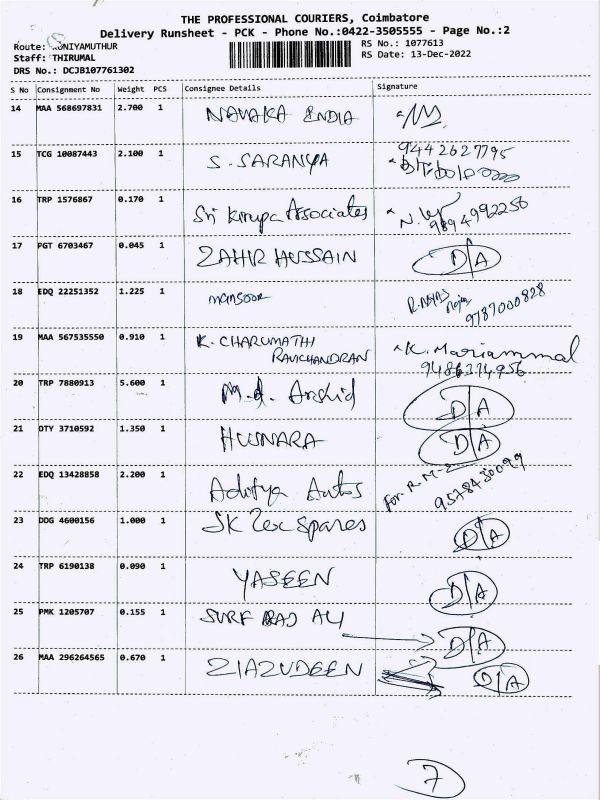 THE PROFESSIONAL COURIERS, Coimbatore
Delivery Runsheet - PCK - Phone No.:0422-3505555 - Page No.:2
Route: KUNIYAMUTHUR
RS No.: 1077613
Staff: THIRUMAL
RS Date: 13-Dec-2022
DRS No.: DCJB107761302
S No Consignment No Weight PCS Consignee Details Signature
14 MAA 568697831 2.700 1 NAVAKA INDIA
15 TCG 10087443 2.100 1 S. SARANYA 9442627795
16 TRP 1576867 0.170 1 Sri Kirupa Associates 9894992250
17 PGT 6703467 0.045 1 ZAHIR HUSSAIN D/A
18 EDQ 22251352 1.225 1 mansoor 9787000828
19 MAA 567535550 0.910 1 K. CHARUMATHI K. Mariammal
RAVICHANDRAN 9486314956
20 TRP 7880913 5.600 1 M.d. Arshid D/A
21 OTY 3710592 1.350 1 HUSNARA D/A
22 EDQ 13428858 2.200 1 Aditya Autos For. R.M-S
23 DDG 4600156 1.000 1 SK Tex Spares D/A
24 TRP 6190138 0.090 1 YASEEN D/A
25 PMK 1205707 0.155 1 ALI D/A
26 MAA 296264565 0.670 1 ZIAZUDEEN D/A
7